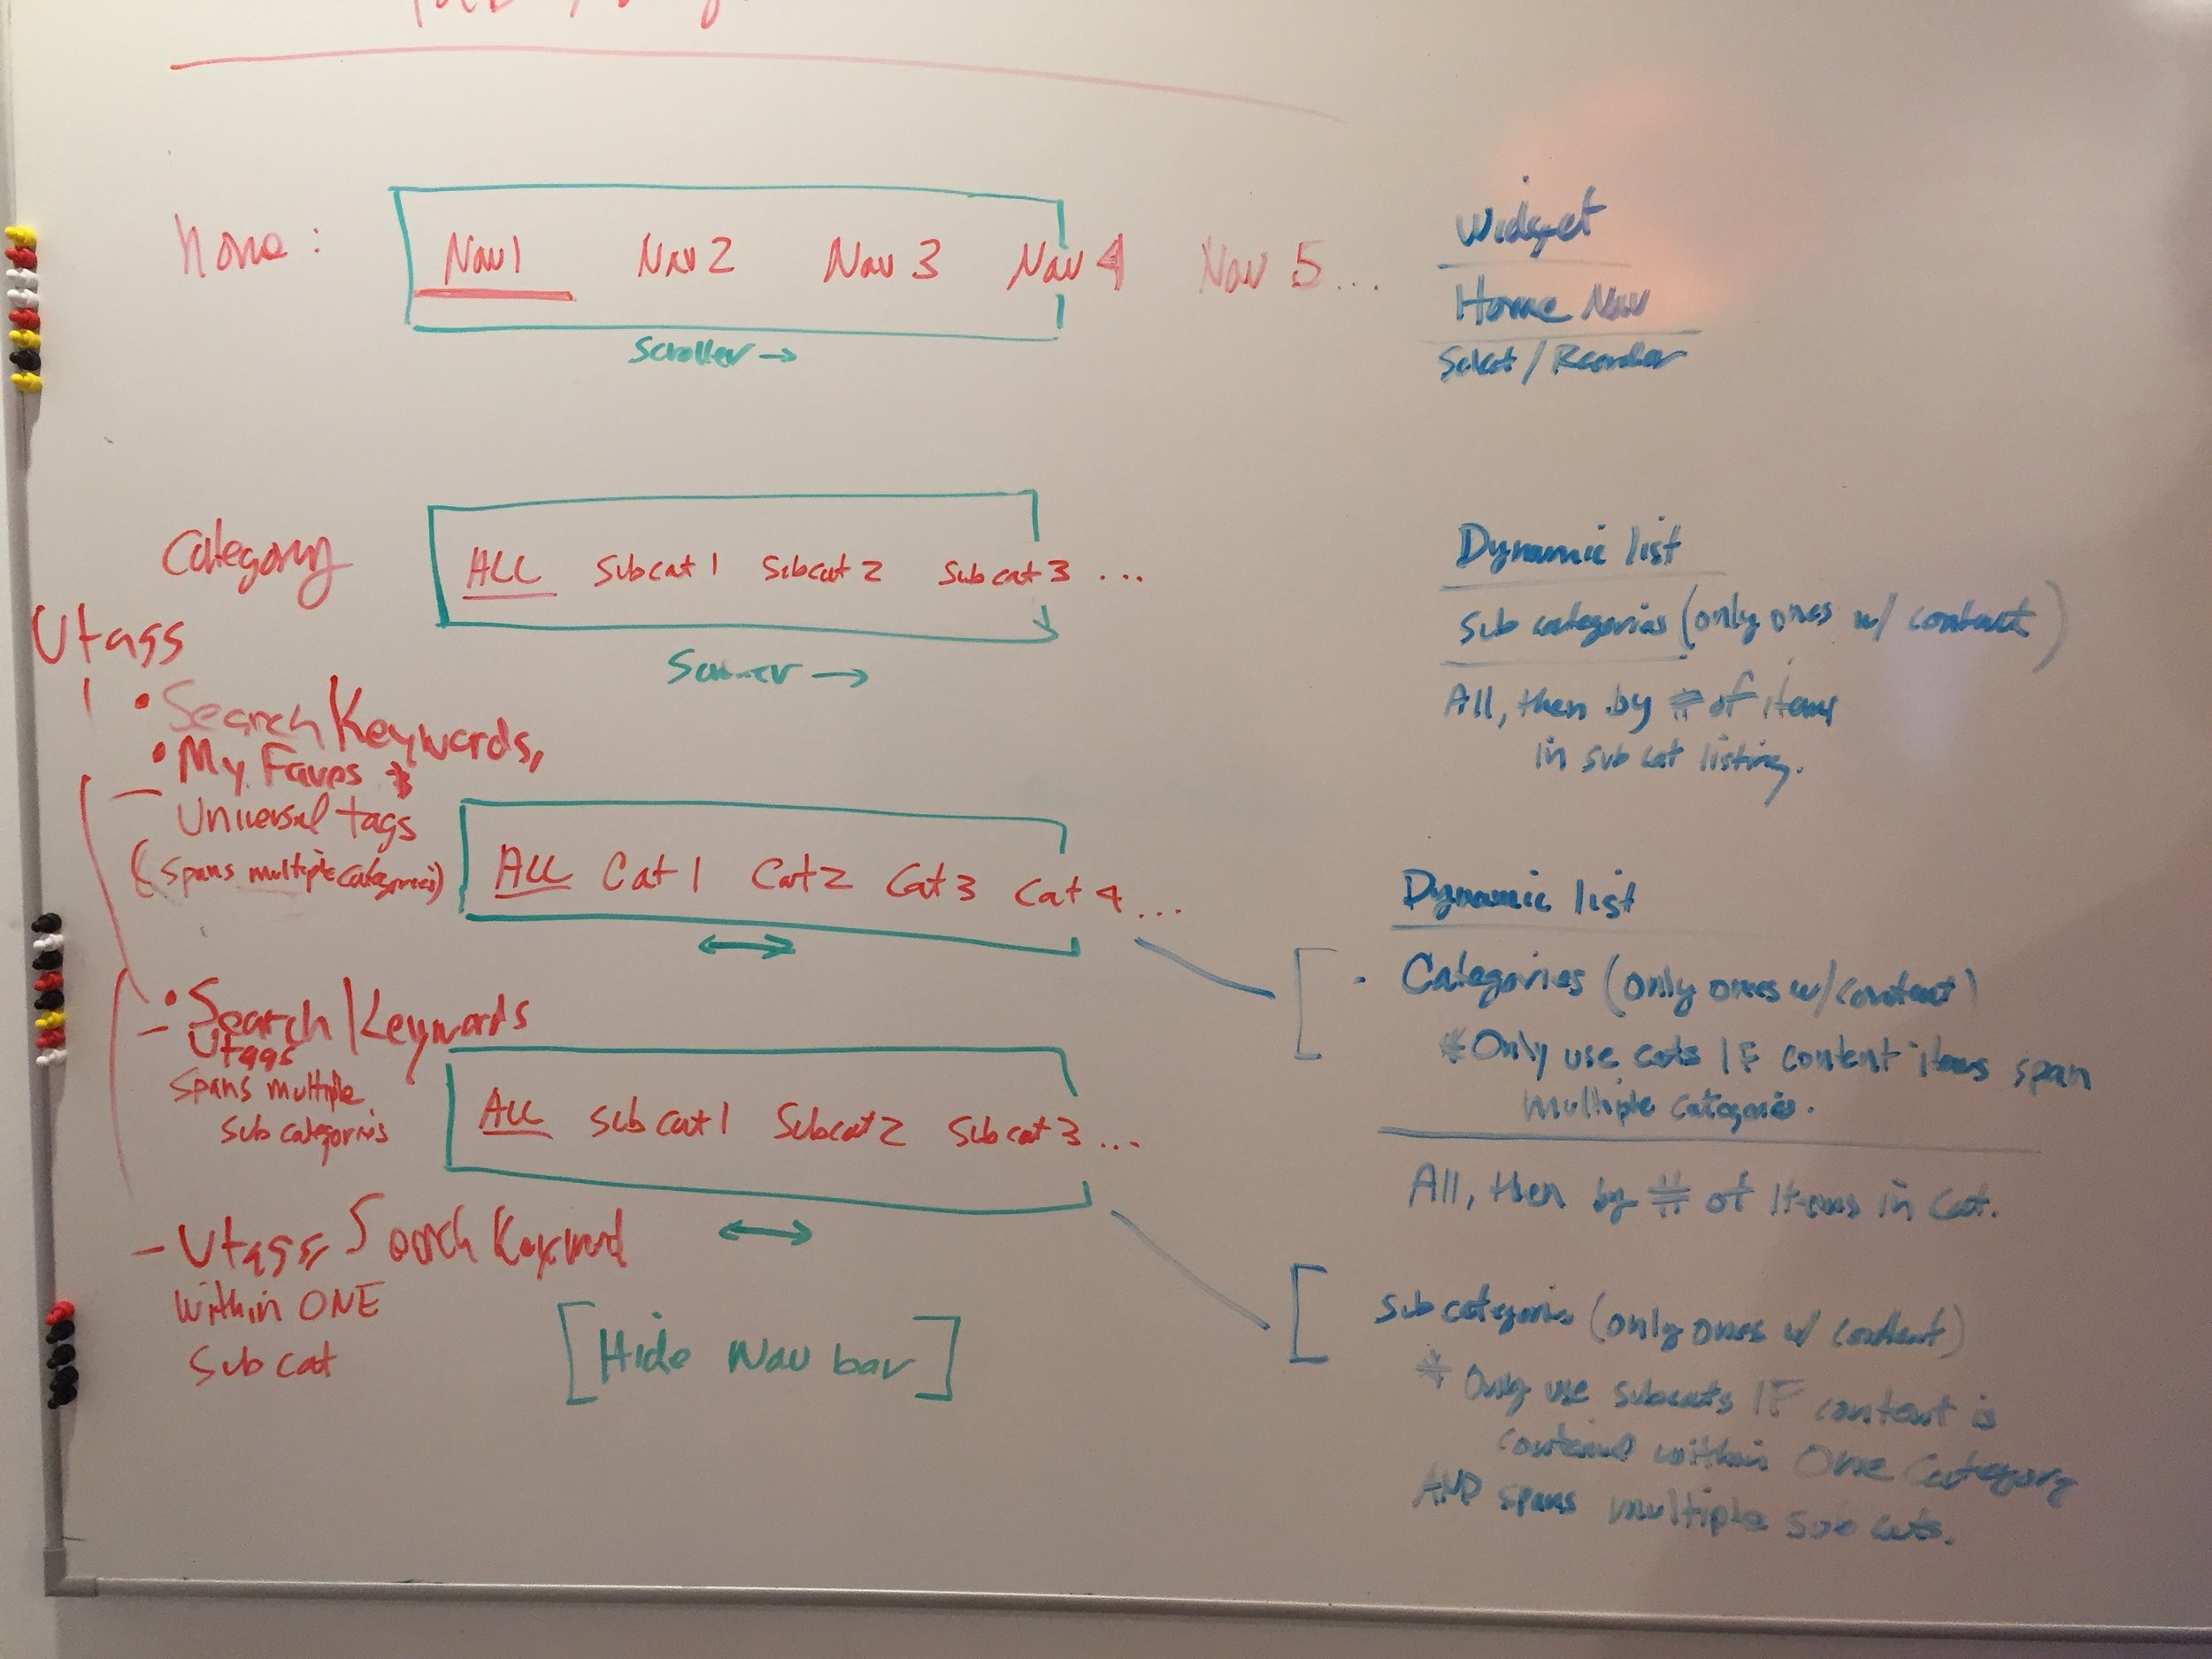 Home :
Nav 1 Nav 2 Nav 3 Nav 4 Nav 5 ...
Scroller →
Widget
Home Nav
Select / Reorder
Category
ALL Subcat 1 Subcat 2 Subcat 3 ...
→
Dynamic list
Sub categories (only ones w/ content)
All, then by # of items
in sub cat listing.
Utags
• Search Keywords,
• My Faves
Universal tags
(Spans multiple categories)
ALL Cat 1 Cat 2 Cat 3 Cat 4 ...
Dynamic list
- Categories (only ones w/ content)
* Only use cats IF content items span
multiple categories.
All, then by # of items in cat.
• Search / Keywords
- Utags
Spans multiple
Sub categories
ALL Subcat 1 Subcat 2 Subcat 3 ...
Sub categories (only ones w/ content)
* Only use subcats IF content is
contained within One Category
AND spans multiple sub cats.
- Utags, Search Keyword
within ONE
Sub cat
[Hide Nav bar]